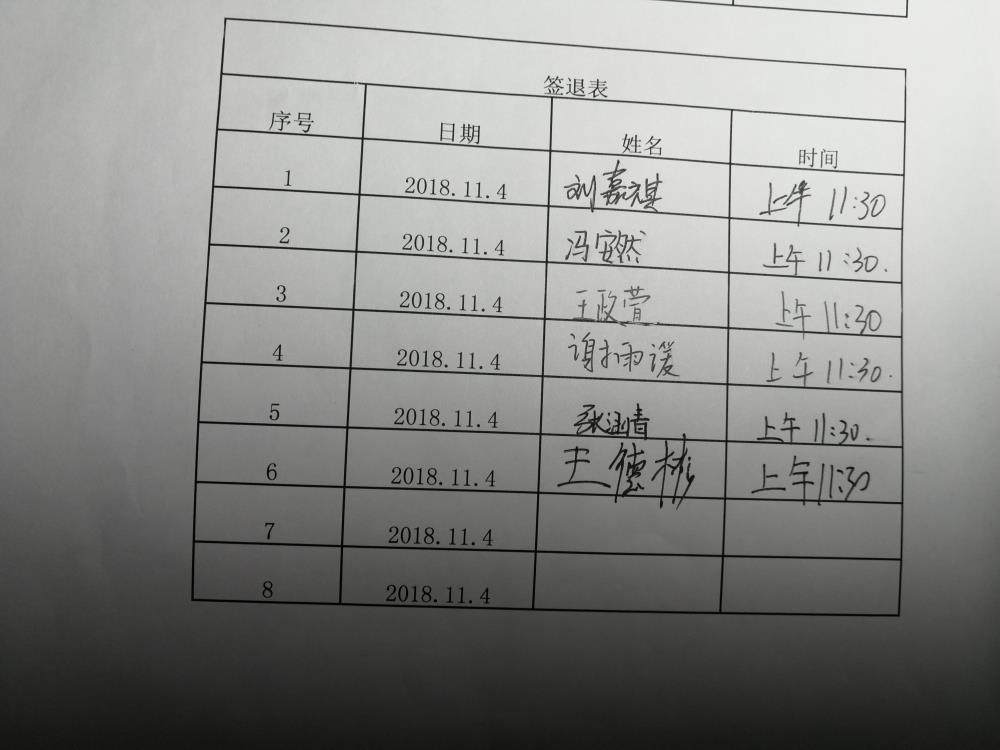 签退表
序号 日期 姓名 时间
1 2018.11.4 刘嘉祺 上午 11:30
2 2018.11.4 冯安然 上午 11:30.
3 2018.11.4 王政萱 上午 11:30
4 2018.11.4 谢雨谖 上午 11:30.
5 2018.11.4 张涵清 上午 11:30.
6 2018.11.4 王德彬 上午 11:30
7 2018.11.4
8 2018.11.4